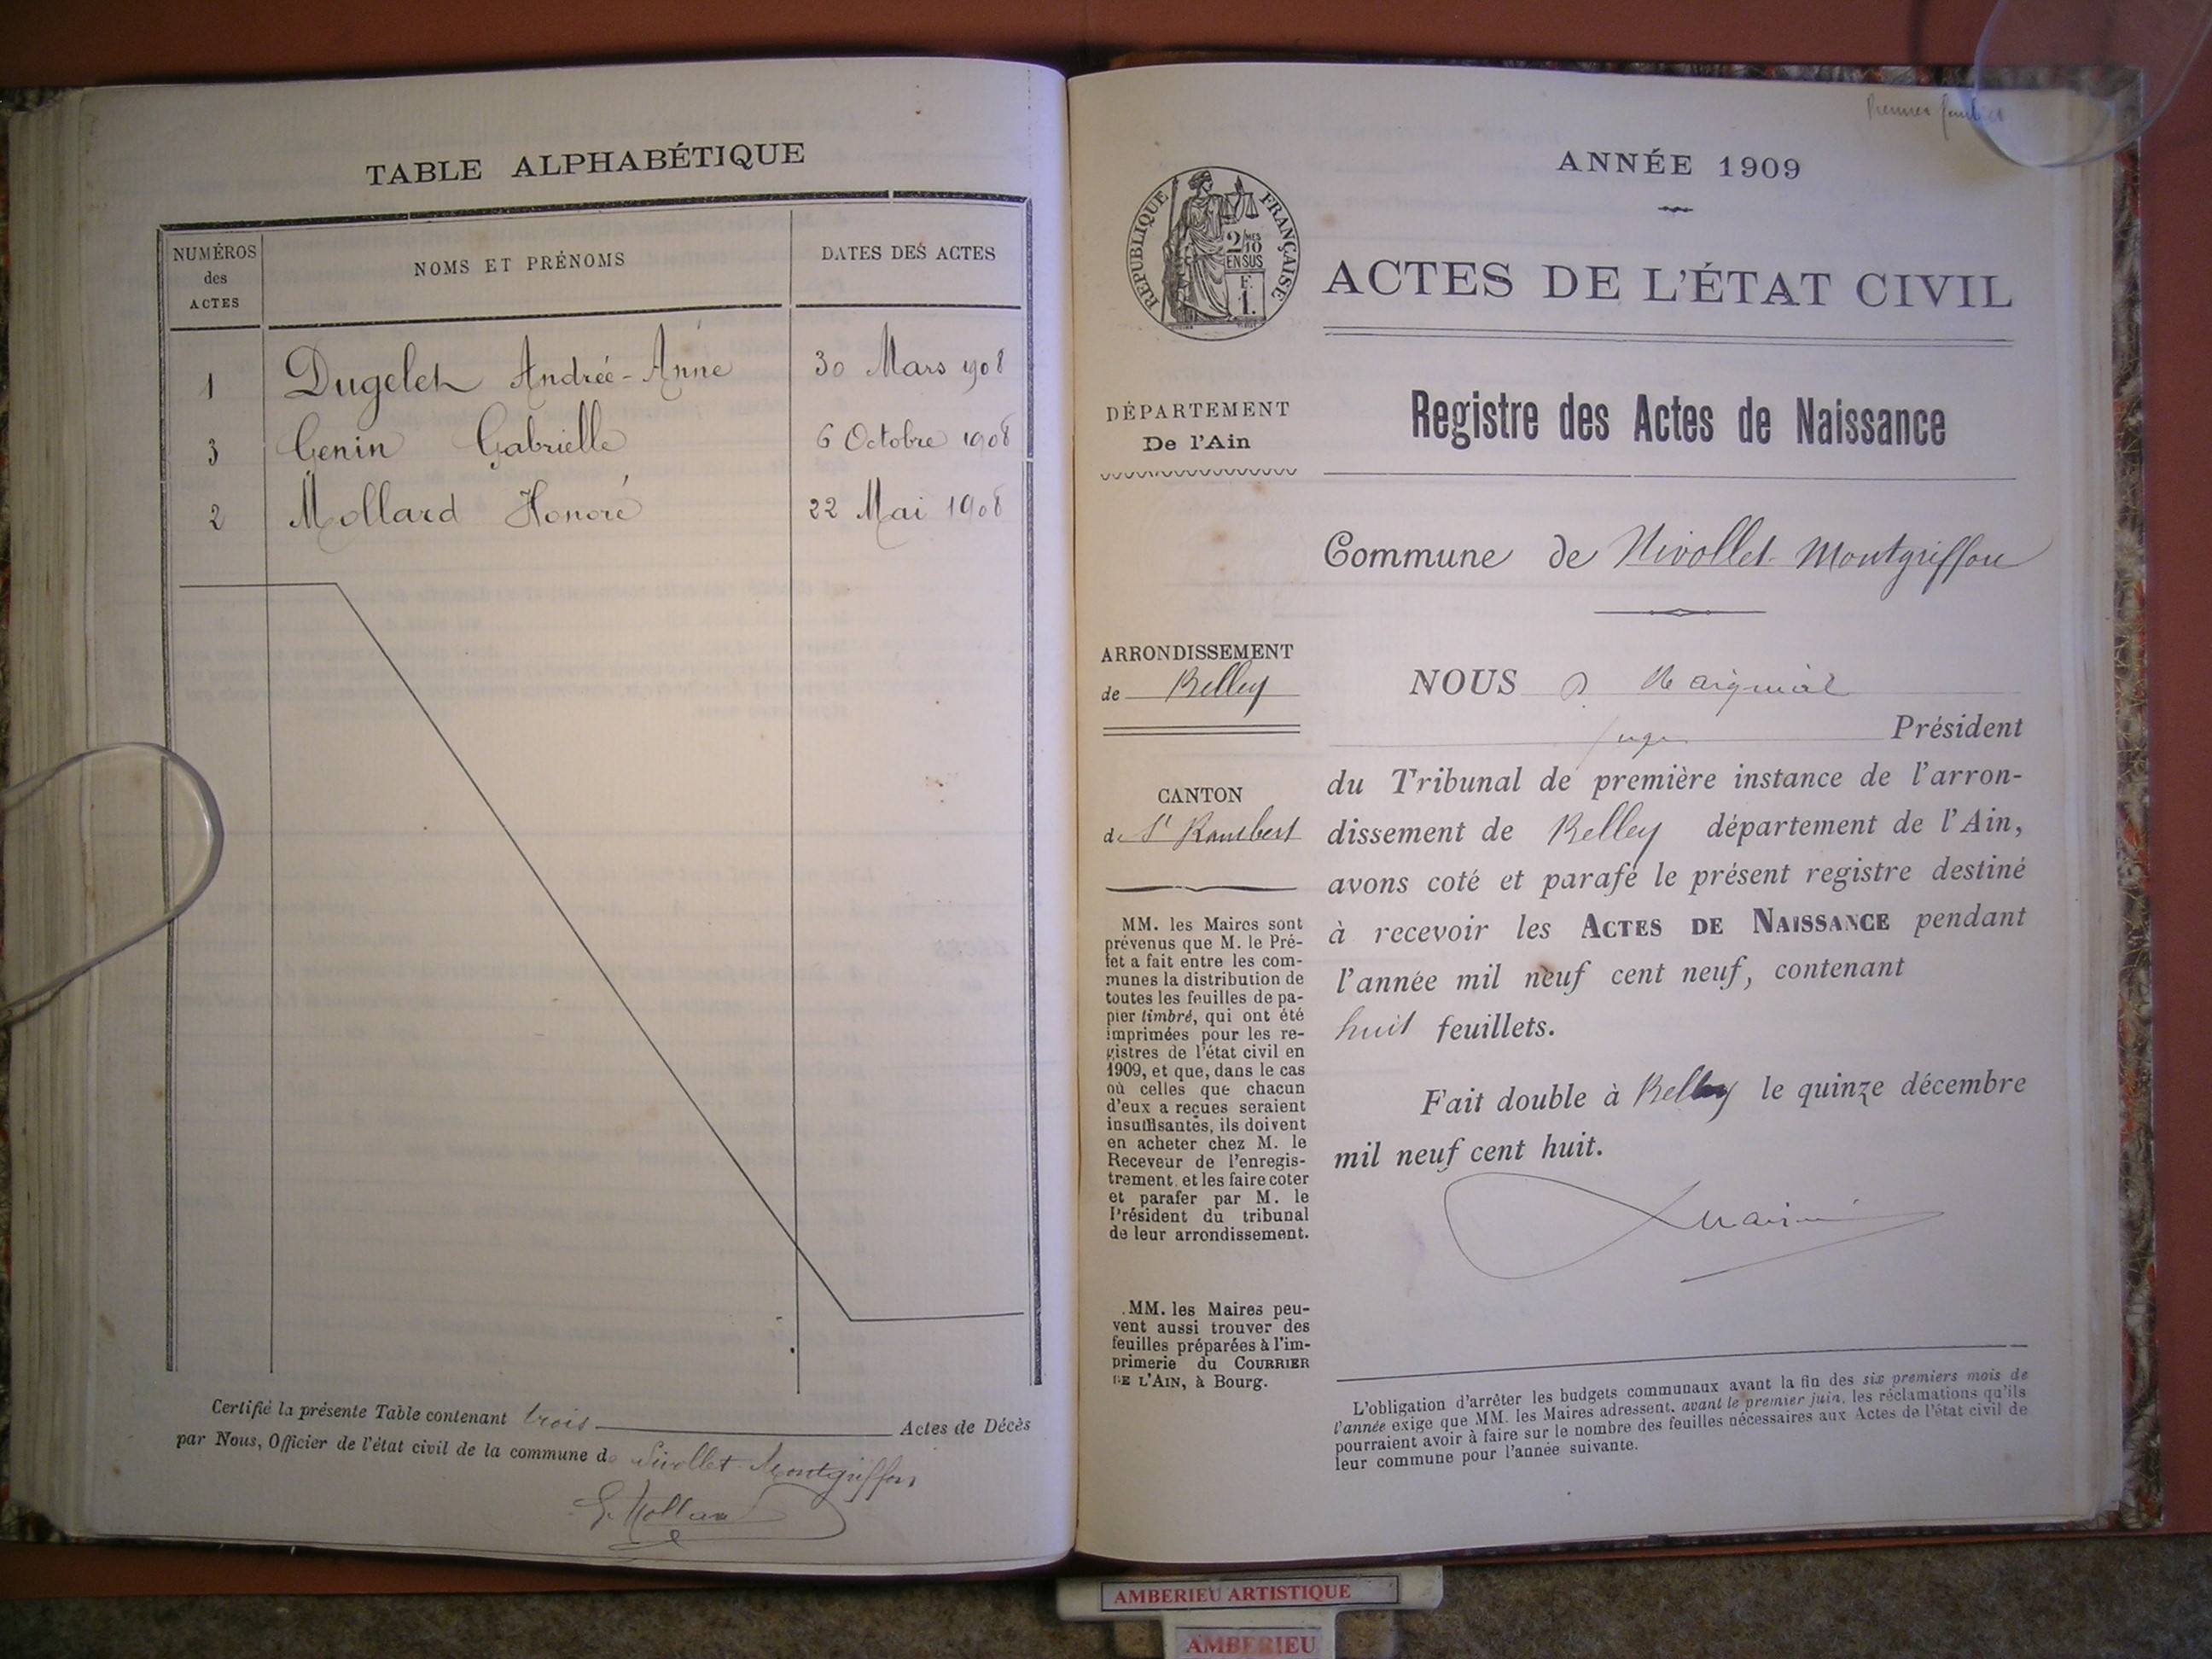 TABLE ALPHABÉTIQUE
NUMÉROS
des
ACTES
NOMS ET PRÉNOMS
DATES DES ACTES
1 Dugelet Andrée-Anne 30 Mars 1908
3 Genin Gabrielle 6 Octobre 1908
2 Mollard Honoré 22 Mai 1908
Certifié la présente Table contenant trois Actes de Décès
par Nous, Officier de l'état civil de la commune de Nivollet-Montgriffon
Premier feuillet
ANNÉE 1909
RÉPUBLIQUE FRANÇAISE
2/10MES
EN SUS
F.
1.
ACTES DE L'ÉTAT CIVIL
DÉPARTEMENT
De l'Ain
Registre des Actes de Naissance
Commune de Nivollet-Montgriffon
ARRONDISSEMENT
de Belley
CANTON
de St Rambert
MM. les Maires sont
prévenus que M. le Pré-
fet a fait entre les com-
munes la distribution de
toutes les feuilles de pa-
pier timbré, qui ont été
imprimées pour les re-
gistres de l'état civil en
1909, et que, dans le cas
où celles que chacun
d'eux a reçues seraient
insuffisantes, ils doivent
en acheter chez M. le
Receveur de l'enregis-
trement, et les faire coter
et parafer par M. le
Président du tribunal
de leur arrondissement.
MM. les Maires peu-
vent aussi trouver des
feuilles préparées à l'im-
primerie du COURRIER
DE L'AIN, à Bourg.
NOUS
juge Président
du Tribunal de première instance de l'arron-
dissement de Belley département de l'Ain,
avons coté et parafé le présent registre destiné
à recevoir les ACTES DE NAISSANCE pendant
l'année mil neuf cent neuf, contenant
huit feuillets.
Fait double à Belley le quinze décembre
mil neuf cent huit.
L'obligation d'arrêter les budgets communaux avant la fin des six premiers mois de
l'année exige que MM. les Maires adressent, avant le premier juin, les réclamations qu'ils
pourraient avoir à faire sur le nombre des feuilles nécessaires aux Actes de l'état civil de
leur commune pour l'année suivante.
AMBERIEU ARTISTIQUE
AMBERIEU